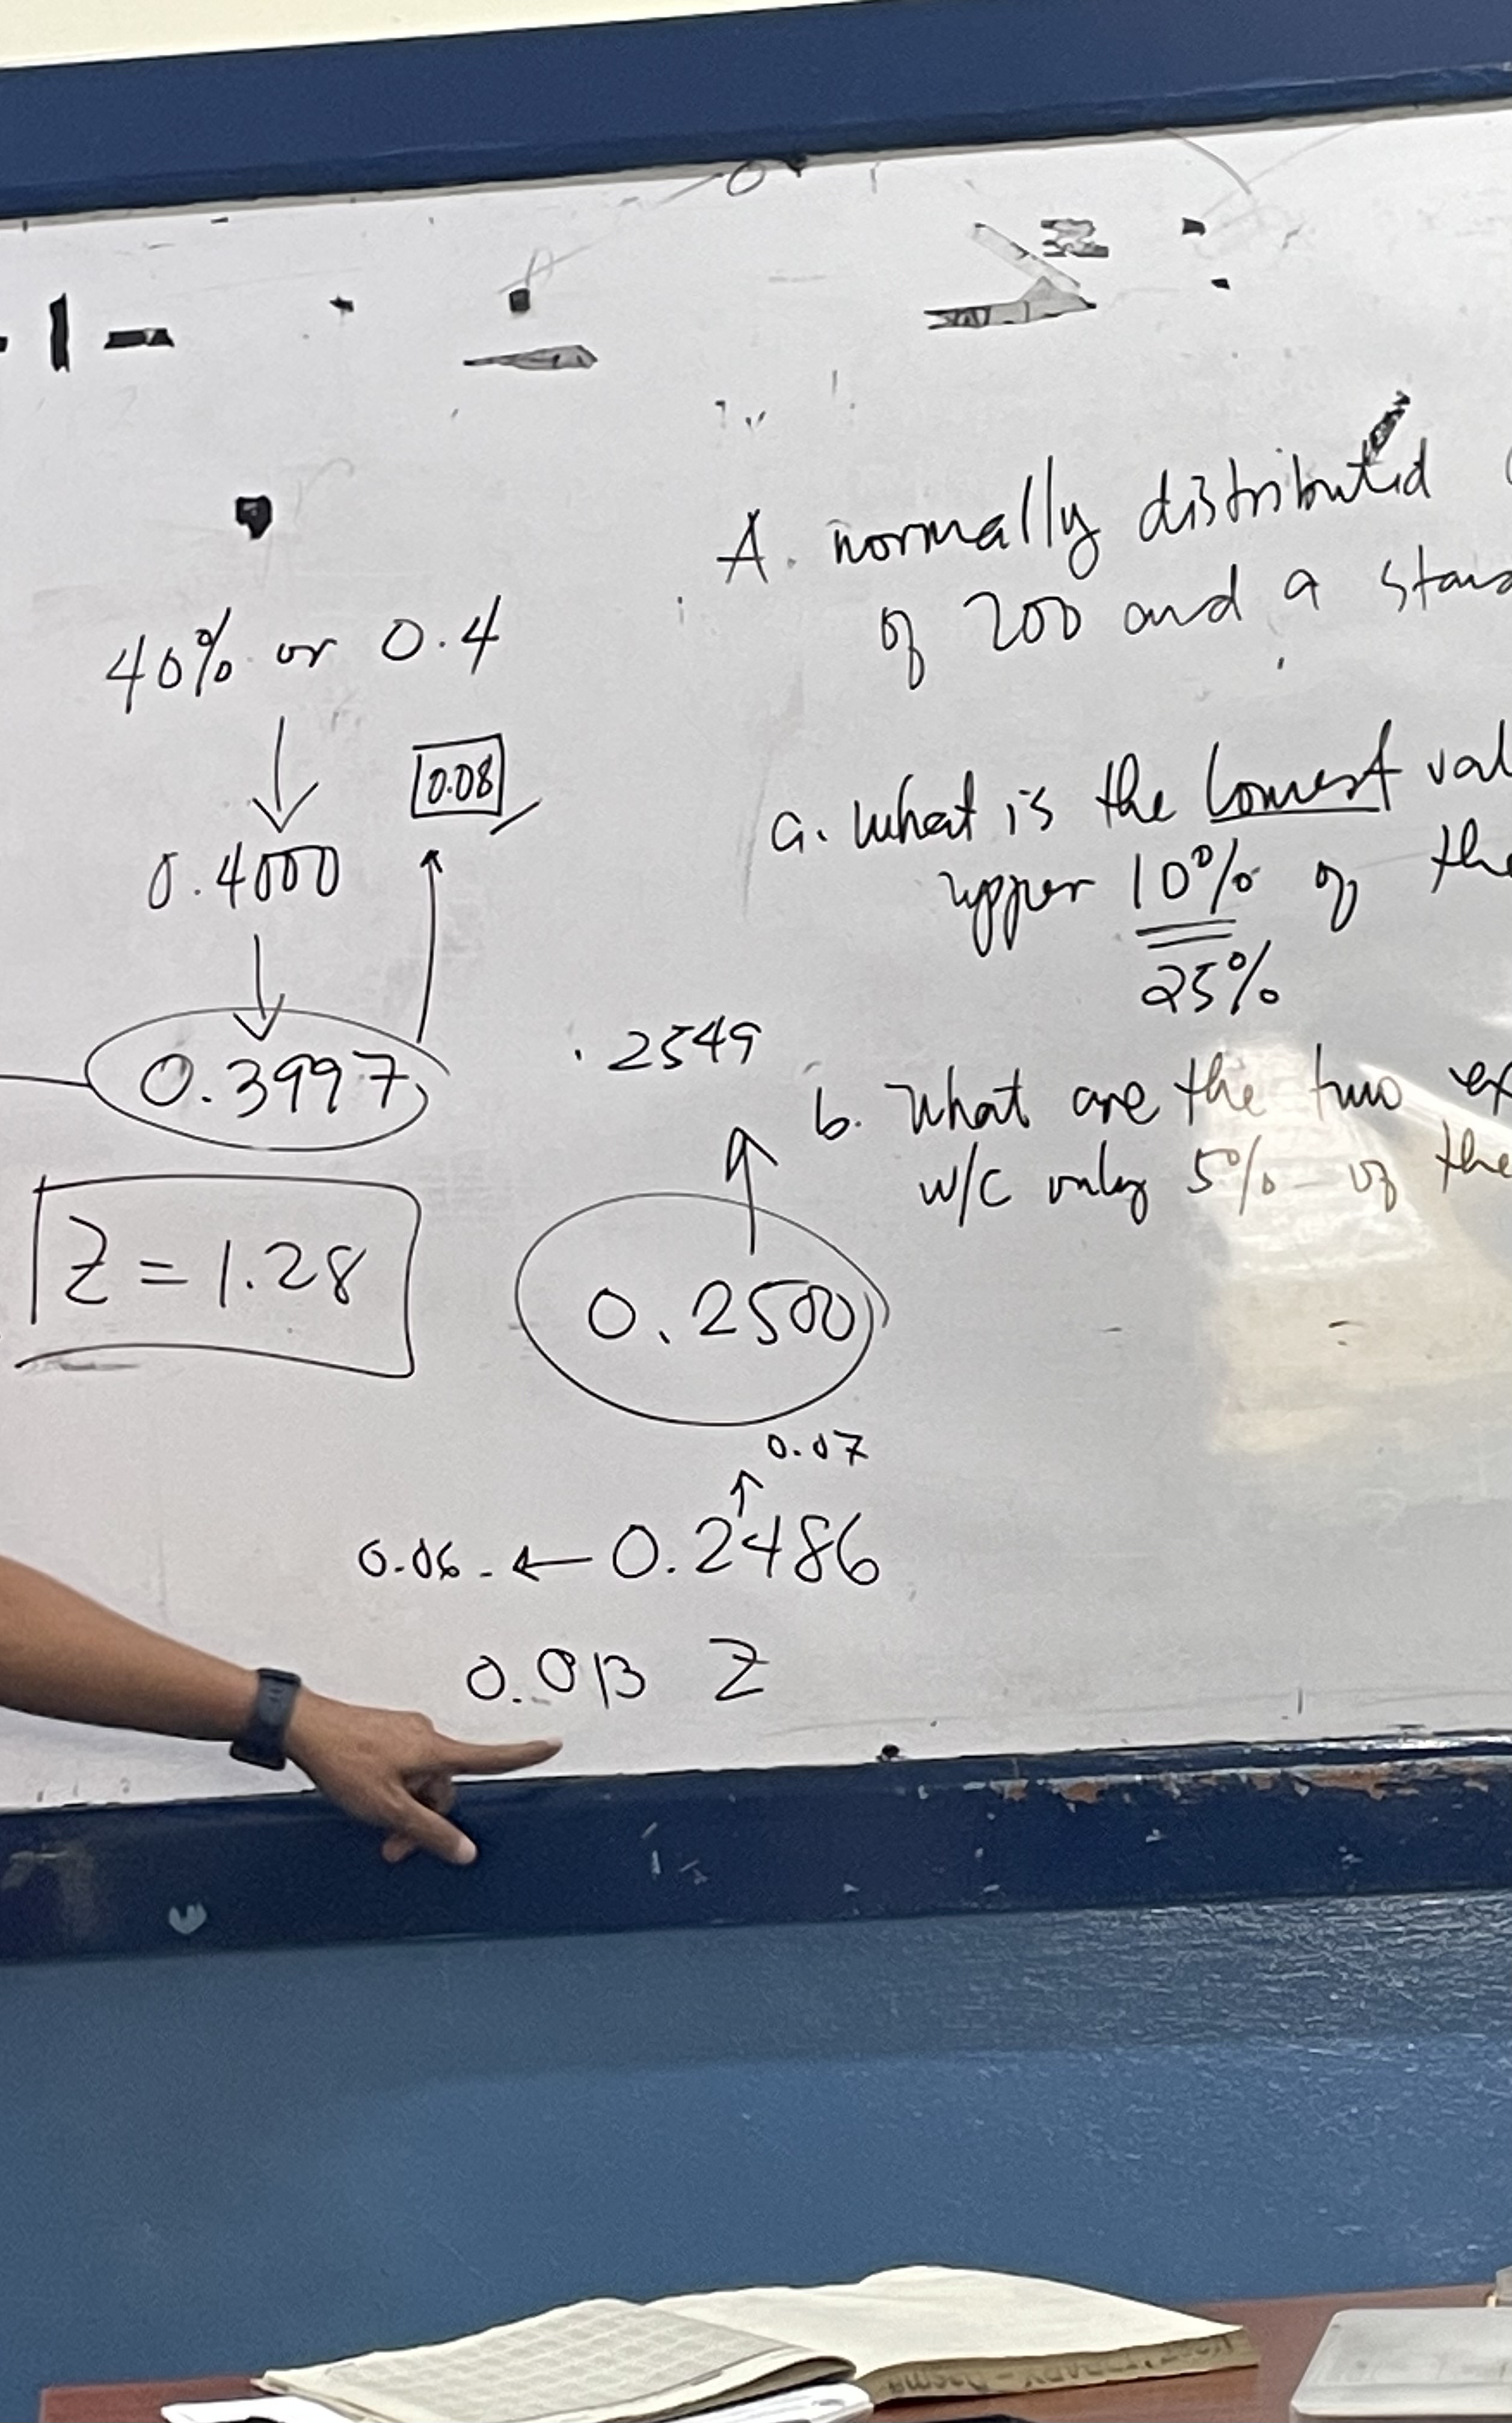 40% or 0.4
0.08
0.4000
0.3997
Z = 1.28
.2549
0.2500
0.07
0.06 ← 0.2486
0.013 Z
A. normally distributed
of 200 and a stan
a. What is the lowest val
upper 10% of the
25%
b. What are the two ex
w/c only 5% of the